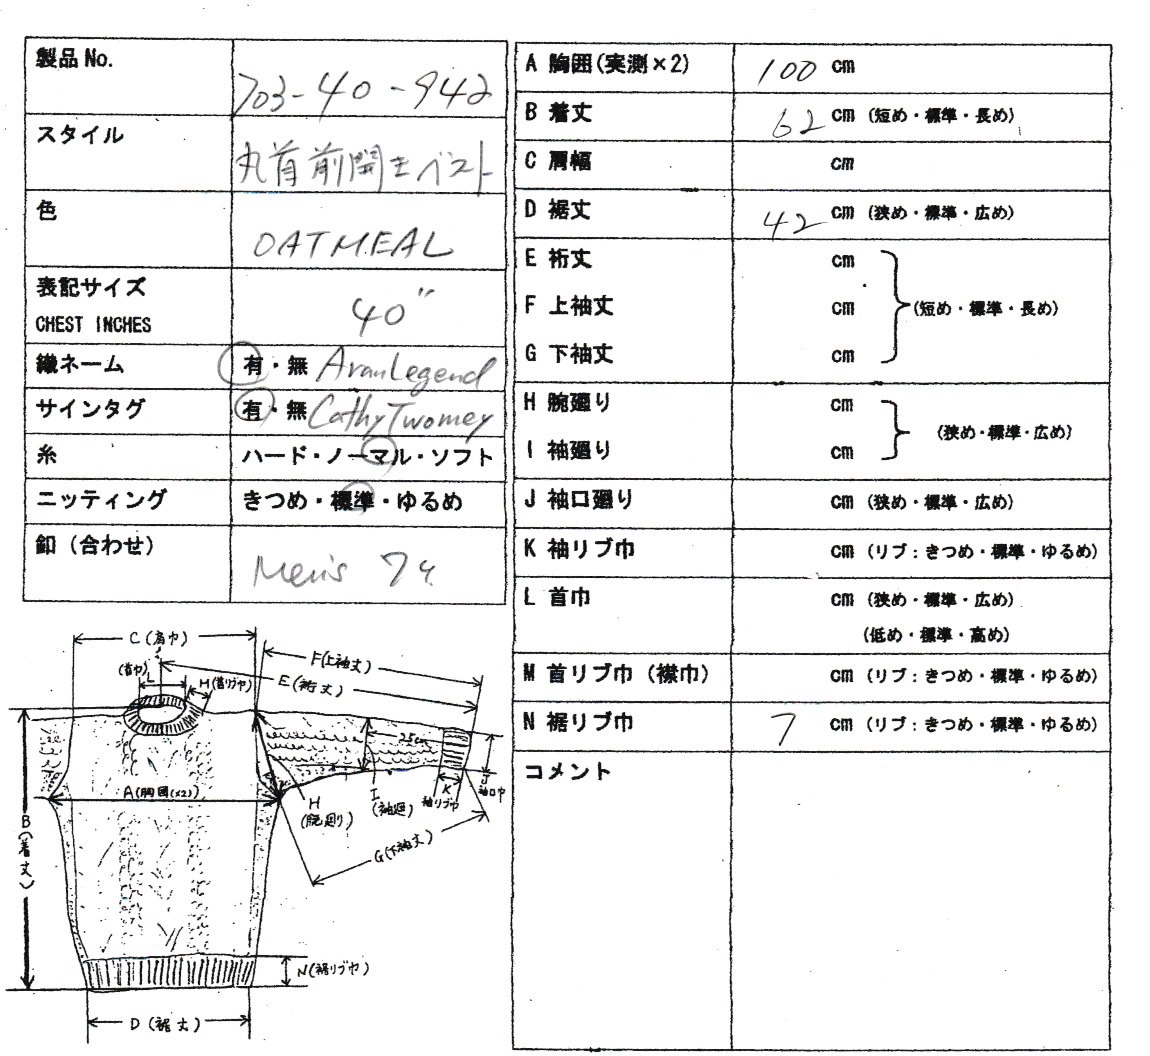 製品No.
703-40-942
スタイル
丸首前開きベスト
色
OATMEAL
表記サイズ
CHEST INCHES
40"
織ネーム
有・無 AranLegend
サインタグ
有・無 Cathy Twomey
糸
ハード・ノーマル・ソフト
ニッティング
きつめ・標準・ゆるめ
釦（合わせ）
Men's 7ケ
A 胸囲(実測×2) 100 cm
B 着丈 62 cm (短め・標準・長め)
C 肩幅 cm
D 裾丈 42 cm (狭め・標準・広め)
E 裄丈 cm
F 上袖丈 cm (短め・標準・長め)
G 下袖丈 cm
H 腕廻り cm
(狭め・標準・広め)
I 袖廻り cm
J 袖口廻り cm (狭め・標準・広め)
K 袖リブ巾 cm (リブ：きつめ・標準・ゆるめ)
L 首巾 cm (狭め・標準・広め)
(低め・標準・高め)
M 首リブ巾（襟巾） cm (リブ：きつめ・標準・ゆるめ)
N 裾リブ巾 7 cm (リブ：きつめ・標準・ゆるめ)
コメント
C(肩巾)
F(上袖丈)
E(裄丈)
(首巾)
L
M(首リブ巾)
25cm
A(胸囲(×2))
B(着丈)
H
(腕廻り)
I
(袖廻)
K
袖リブ巾
J
袖口巾
G(下袖丈)
N(裾リブ巾)
D(裾丈)